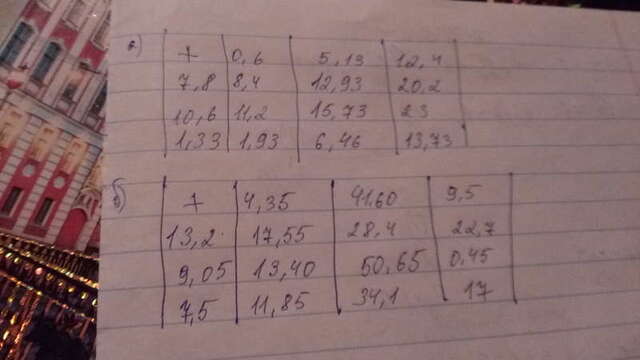 а) + 0,6 5,13 12,4
7,8 8,4 12,93 20,2
10,6 11,2 15,73 23
1,33 1,93 6,46 13,73
б) + 4,35 41,60 9,5
13,2 17,55 28,4 22,7
9,05 13,40 50,65 0,45
7,5 11,85 34,1 17